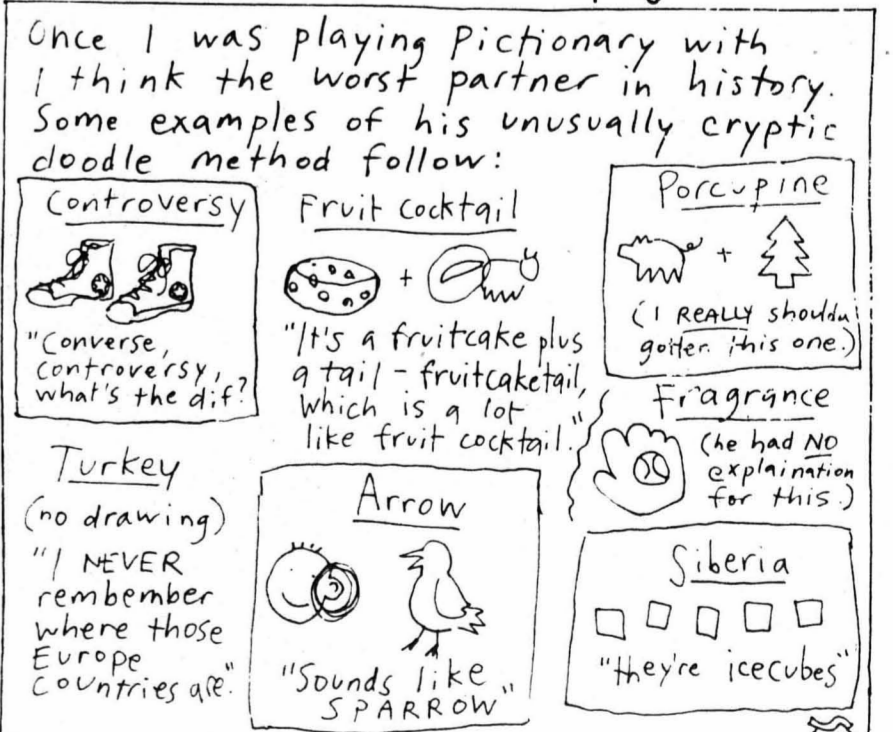 Once I was playing Pictionary with
I think the worst partner in history.
Some examples of his unusually cryptic
doodle method follow:
Controversy
"Converse,
controversy,
what's the dif?
Fruit Cocktail
+
"It's a fruitcake plus
a tail - fruitcaketail,
which is a lot
like fruit cocktail."
Porcupine
+
(I REALLY shoulda
gotten this one.)
Turkey
(no drawing)
"I NEVER
rembember
where those
Europe
countries are."
Arrow
"Sounds like
SPARROW"
Fragrance
(he had NO
explaination
for this.)
Siberia
"they're icecubes"